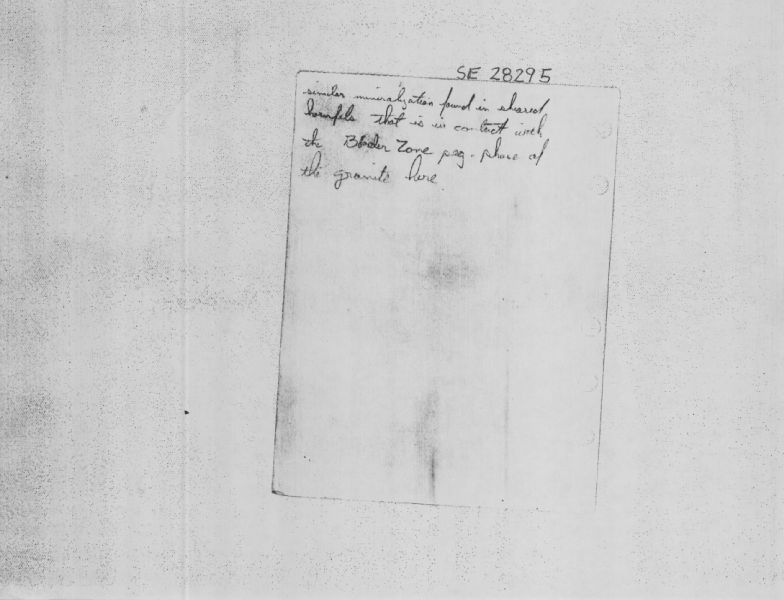 SE 28295
similar mineralization found in sheared
hornfels that is in contact with
the Border Zone peg. phase of
the granite here.